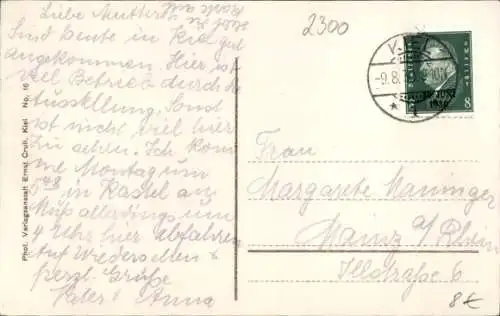 Liebe Mutter!
Sind heute in Kiel gut
angekommen. Hier ist
viel Betrieb durch die
Ausstellung. Sonst
ist nicht viel hier
zu sehen. Ich kom
me Montag um
5 48 in Kastel an
Muß allerdings um
4 Uhr hier abfahren
Auf Wiedersehen &
herzl. Grüße
Vater & Anna
Phot. Verlagsanstalt Ernst Crull, Kiel No. 16
2300
-9.8.
8
1930
Frau
Margarete Maninger
Mainz a/Rhein
Illstraße 6
8€